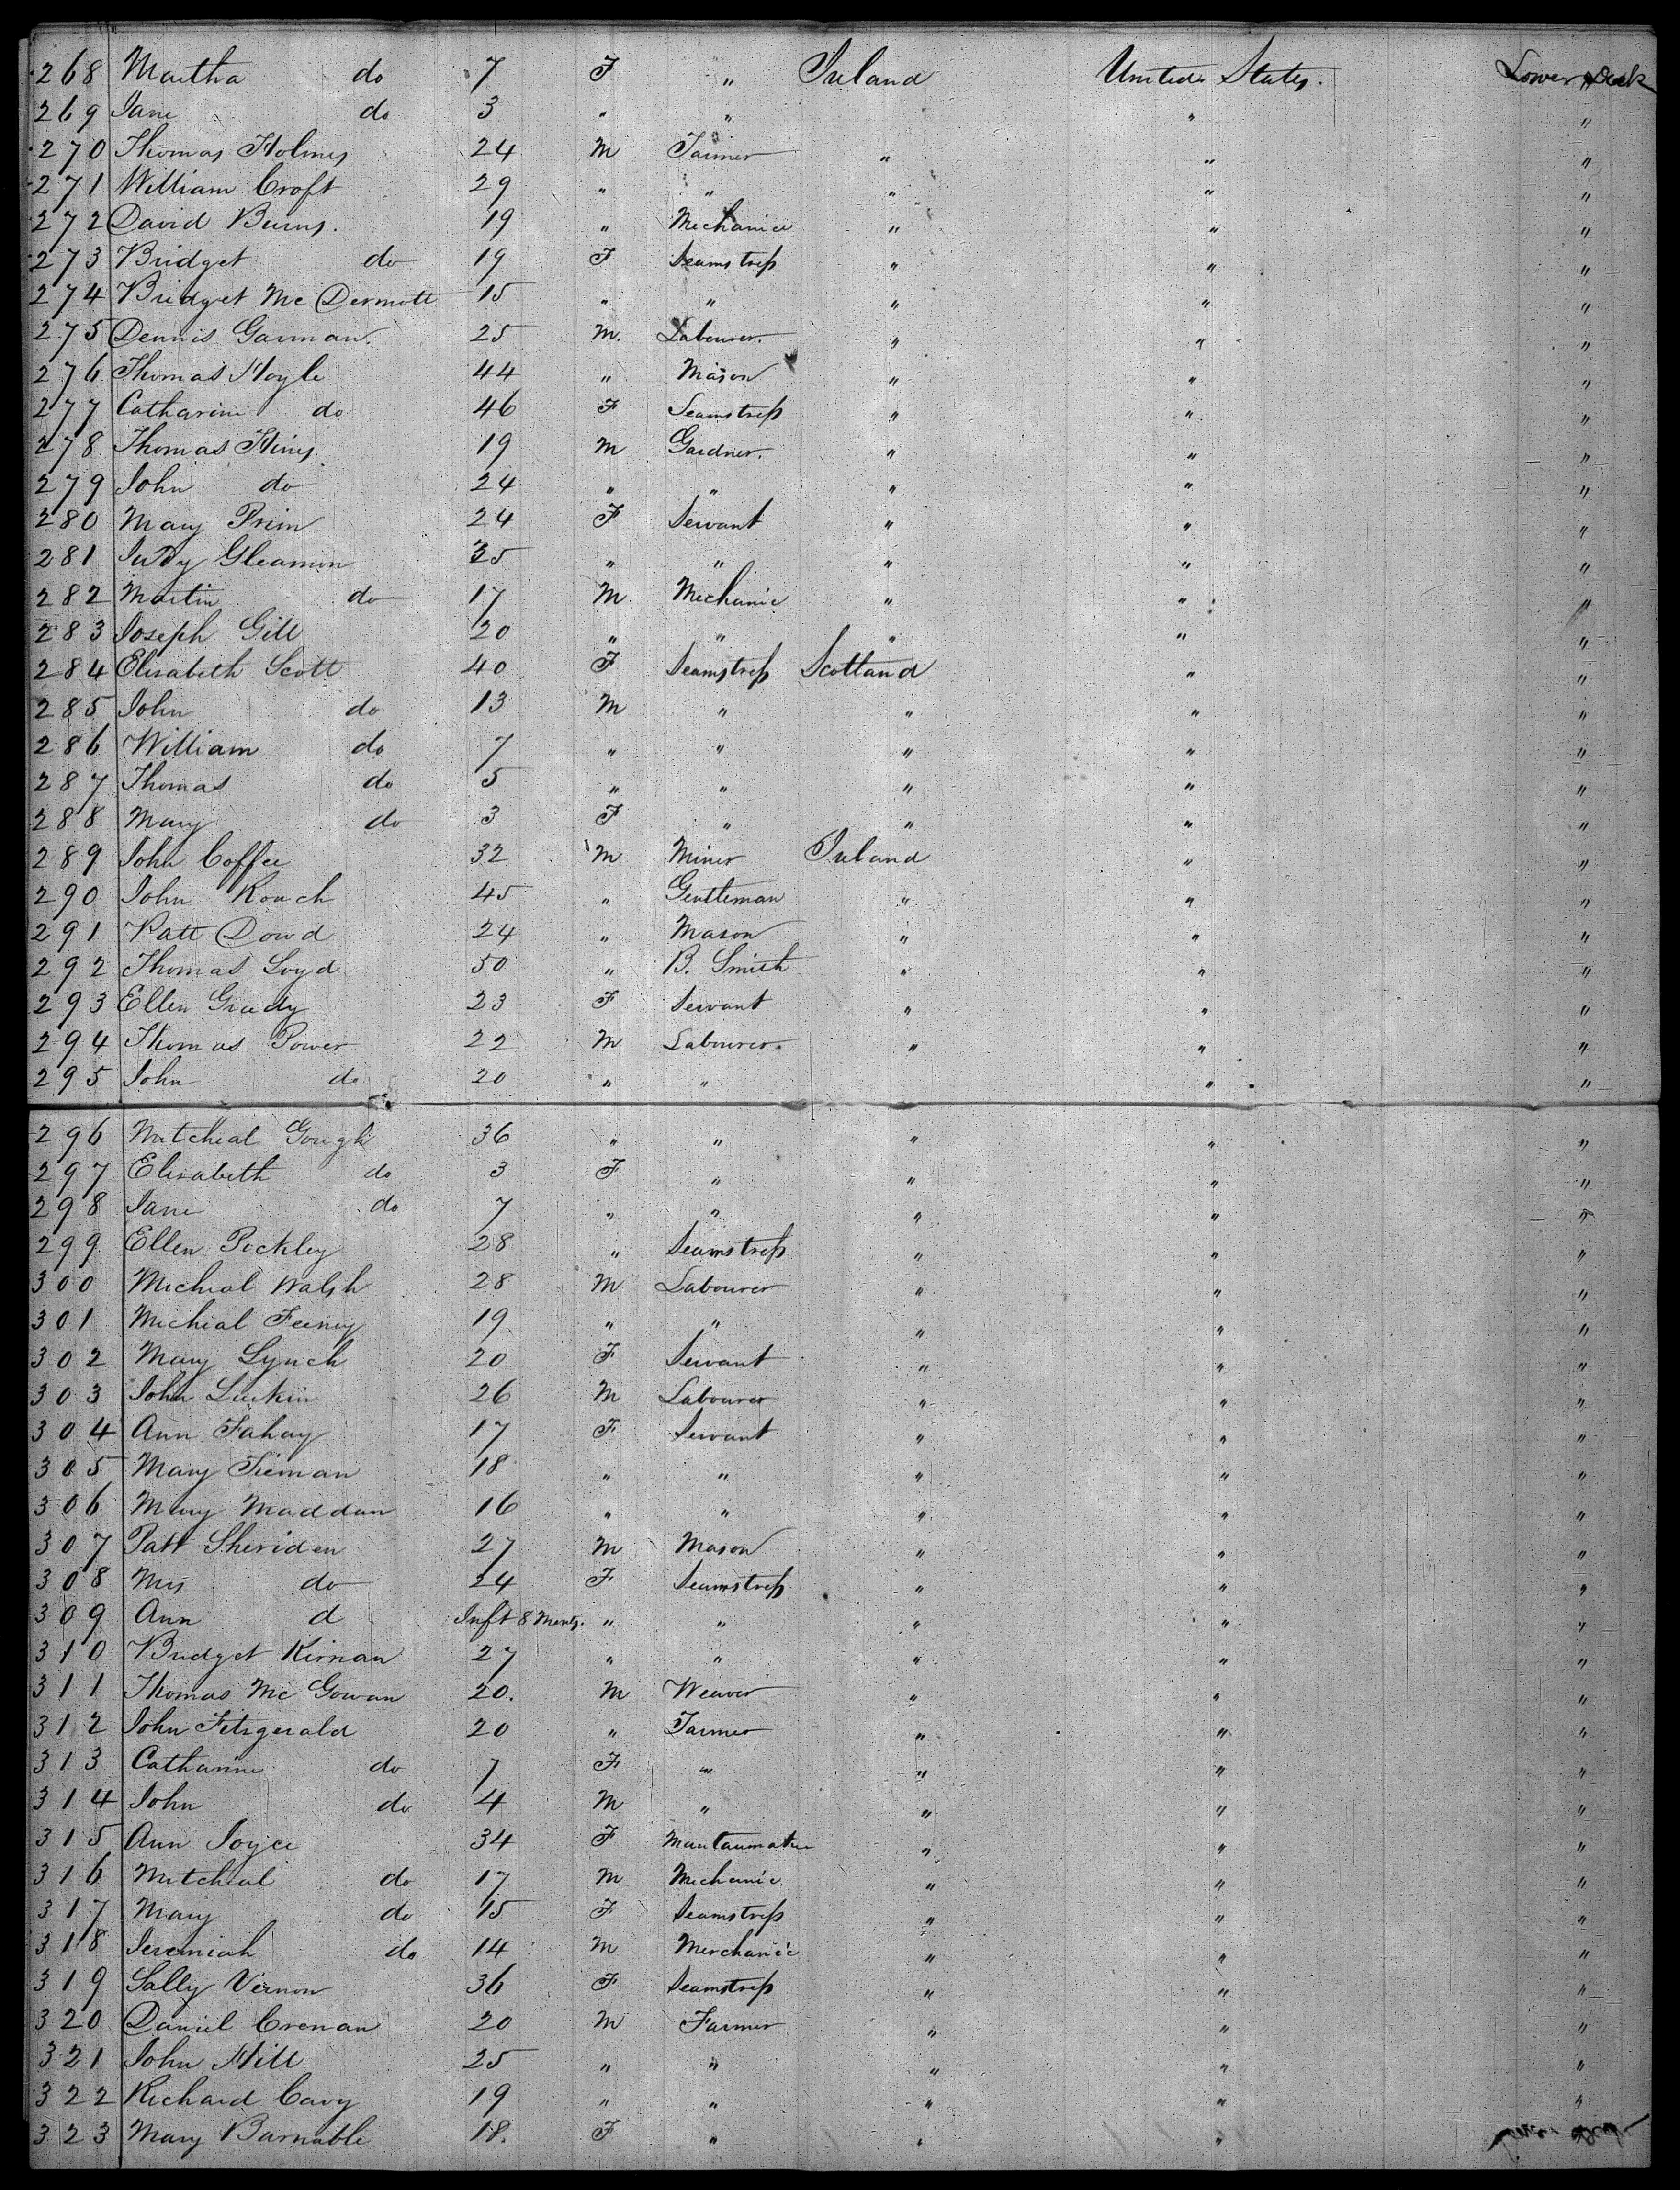 268 Martha do 7 F " Ireland United States. Lower Deck
269 Jane do 3 " " " "
270 Thomas Holmes 24 M Farmer " " "
271 William Croft 29 " " " " "
272 David Burns. 19 " Mechanic " " "
273 Bridget do 19 F Seamstress " " "
274 Bridget Mc Dermott 15 " " " " "
275 Dennis Garman. 25 M. Labourer. " " "
276 Thomas Hoyle 44 " Mason " " "
277 Catharine do 46 F Seamstress " " "
278 Thomas Hines 19 M Gardner. " " "
279 John do 24 " " " " "
280 Mary Prim 24 F Servant " " "
281 Judy Gleamon 35 " " " " "
282 Martin do 17 M Mechanic " " "
283 Joseph Gill 20 " " " " "
284 Elisabeth Scott 40 F Seamstress Scotland " "
285 John do 13 M " " " "
286 William do 7 " " " " "
287 Thomas do 5 " " " " "
288 Mary do 3 F " " " "
289 John Coffee 32 M Miner Ireland " "
290 John Roach 45 " Gentleman " " "
291 Patt Dowd 24 " Mason " " "
292 Thomas Loyd 50 " B. Smith " " "
293 Ellen Grady 23 F Servant " " "
294 Thomas Power 22 M Labourer. " " "
295 John do 20 " " " "
296 Mitcheal Gough 36 " " " " "
297 Elisabeth do 3 F " " " "
298 Jane do 7 " " " " "
299 Ellen Pickley 28 " Seamstress " " "
300 Micheal Walsh 28 M Labourer " " "
301 Michial Feeney 19 " " " " "
302 Mary Lynch 20 F Servant " " "
303 John Luckin 26 M Labourer " " "
304 Ann Fahay 17 F Servant " " "
305 Mary Tieman 18 " " " " "
306 Mary Maddan 16 " " " " "
307 Patt Sheriden 27 M Mason " " "
308 Mrs do 24 F Seamstress " " "
309 Ann d Inft 8 Monts. " " " " "
310 Bridget Kirnan 27 " " " " "
311 Thomas Mc Gowan 20. M Weaver " " "
312 John Fitzgerald 20 " Farmer " " "
313 Catharine do 7 F " " " "
314 John do 4 M " " " "
315 Ann Joyce 34 F " " "
316 Mitchial do 17 M Mechanic " " "
317 Mary do 15 F Seamstress " " "
318 Jeremiah do 14 M Merchanic " " "
319 Sally Vernon 36 F Seamstress " " "
320 Daniel Crenan 20 M Farmer " " "
321 John Hill 25 " " " " "
322 Richard Cavy 19 " " " " "
323 Mary Barnable 18. F " " "